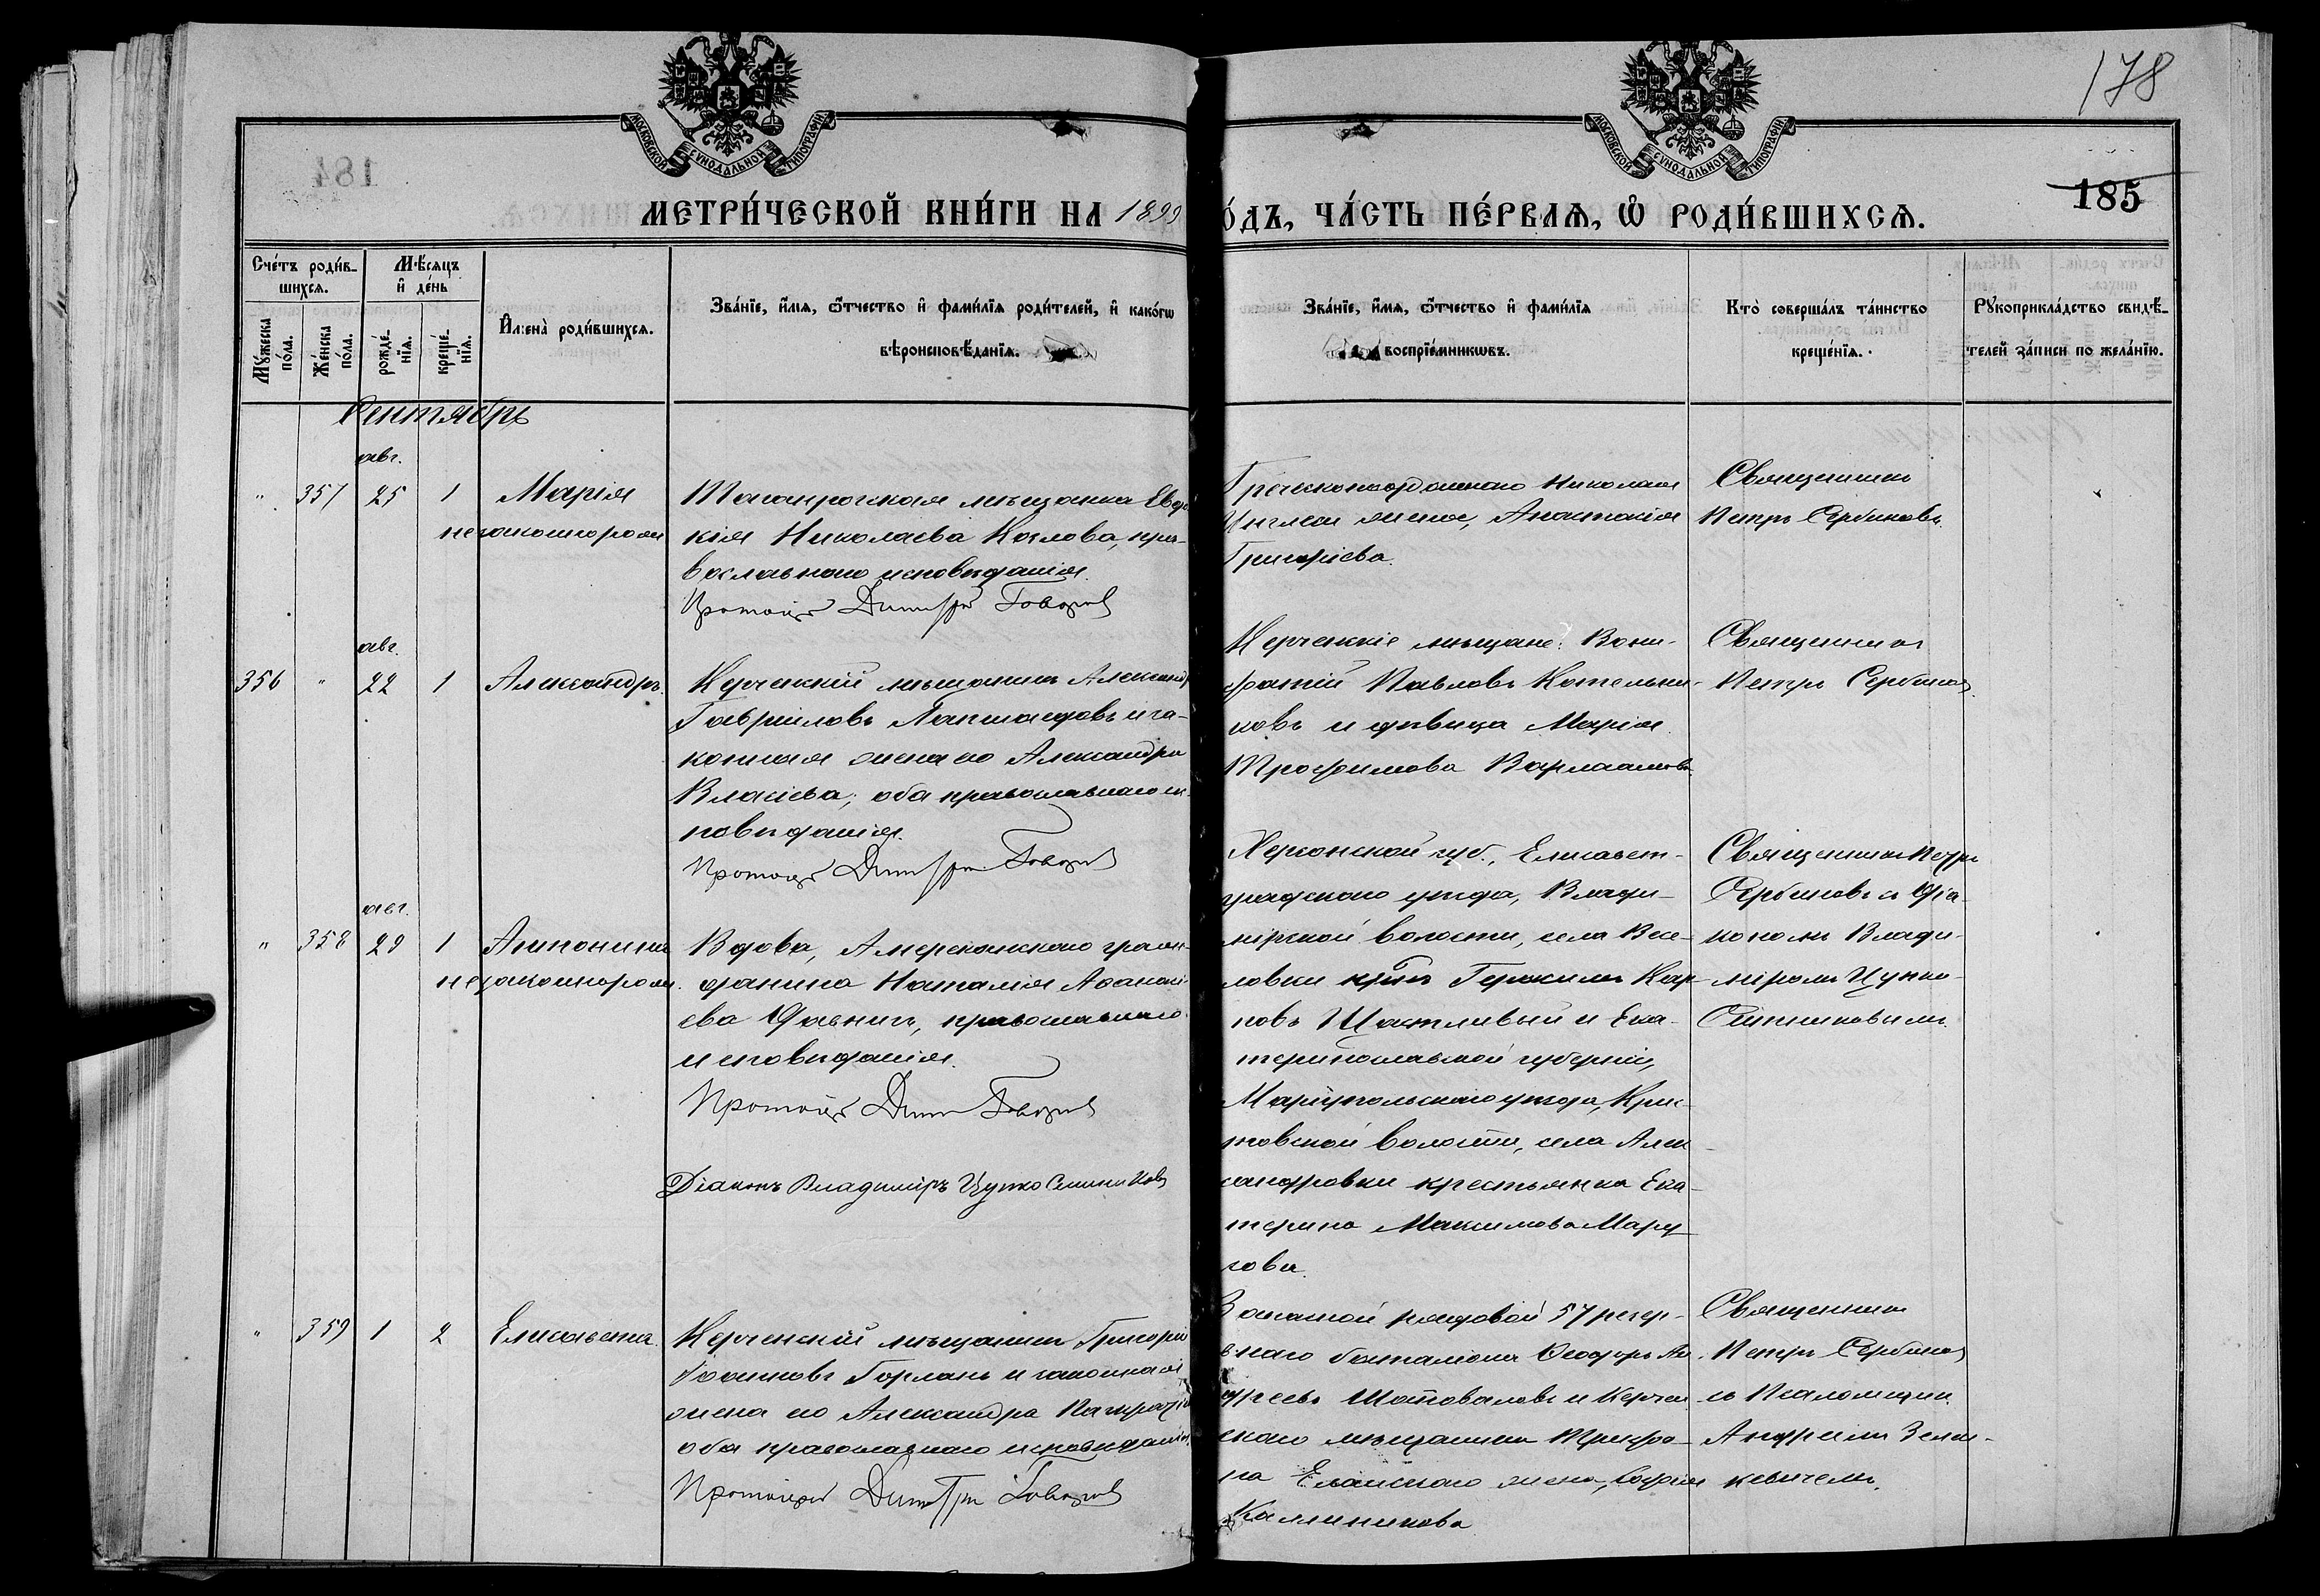 178
185
МОСКОВСКОЙ СѴНОДАЛЬНОЙ ТИПОГРАФІИ
МОСКОВСКОЙ СѴНОДАЛЬНОЙ ТИПОГРАФІИ
МЕТРИ́ЧЕСКОЙ КНИ́ГИ НА 1899
О́ДЪ, ЧА́СТЬ ПЕ́РВАЯ, Ѡ҆ РОДИ́ВШИХСЯ.
Сче́тъ роди́в-
шихся.
Мѹ́жеска по́ла.
Же́нска по́ла.
Мѣ́сяцъ и҆ де́нь
рожде́-нїя.
креще́-нїя.
И҆мена̀ роди́вшихся.
Зва́нїе, и҆́мя, ѻ҆́тчество и҆ фами́лїя роди́телей, и҆ како́гѡ
вѣроисповѣ́данїя.
Зва́нїе, и҆́мя, ѻ҆́тчество и҆ фами́лїя
воспрїе́мникѡвъ.
Кто̀ соверша́лъ та́инство
креще́нїя.
Рѹкоприкла́дство свидѣ́-
телей за́писи по жела́нїю.
Сентябрь
авг.
" 357 25 1 Марія
незаконнорож
Таганрогская мѣщанка Евдо
кія Николаева Козлова, пра-
вославнаго исповѣданія.
Протоіер Димитри Говоров
Греческоподданнаго Николая
Инглеси жена, Анастасія
Григоріева.
Священник
Петръ Сербиновъ.
авг.
356 " 22 1 Александръ.
Керченскій мѣщанин Александр
Гавриловъ Лапшаковъ и за-
конная жена его Александра
Власіева; оба православнаго ис
повѣданія.
Протоіер Димитри Говоров
Керченскіе мѣщане: Вони-
фатій Павловъ Котельни-
ковъ и дѣвица Марія
Трофимова Варлаамова
Священник
Петръ Сербинов
авг.
" 358 29 1 Антонина
незаконнорож.
Вдова, Американскаго граж-
данина Наталія Аѳанасі
ева Фавниг, православнаго
исповѣданія.
Протоіер Дими Говоров
Діаконъ Владимиръ Цупко Ситников
Херсонской губ., Елисавет-
градскаго уѣзда, Влади-
мірской волости, села Весе-
ловки крнъ Герасимъ Кар-
повъ Щасливый и Ека-
теринославской губерніи,
Маріупольскаго уѣзда, Крис-
товской волости, села Алек
сандровки крестьянка Ека-
терина Максимова Мару
Священник Петръ
Сербиновъ с діа-
кономъ Влади-
міромъ Цупко-
Ситниковымъ.
" 359 1 2 Елисавета.
Керченскій мѣщанинъ Григорій
Іоанновъ Горланъ и законная
жена его Александра
оба православнаго исповѣданія
Протоіерей Димитри Говоров
Запасной рядовой 57 резер-
внаго баталіона Ѳеодоръ Ан
дреевъ Шаповаловъ и Керчен
скаго мѣщанина
жена, Софія
Каллиникова
Священник
Петръ Сербинов
съ Псаломщик.
Андреемъ Зелен-
кевичемъ.